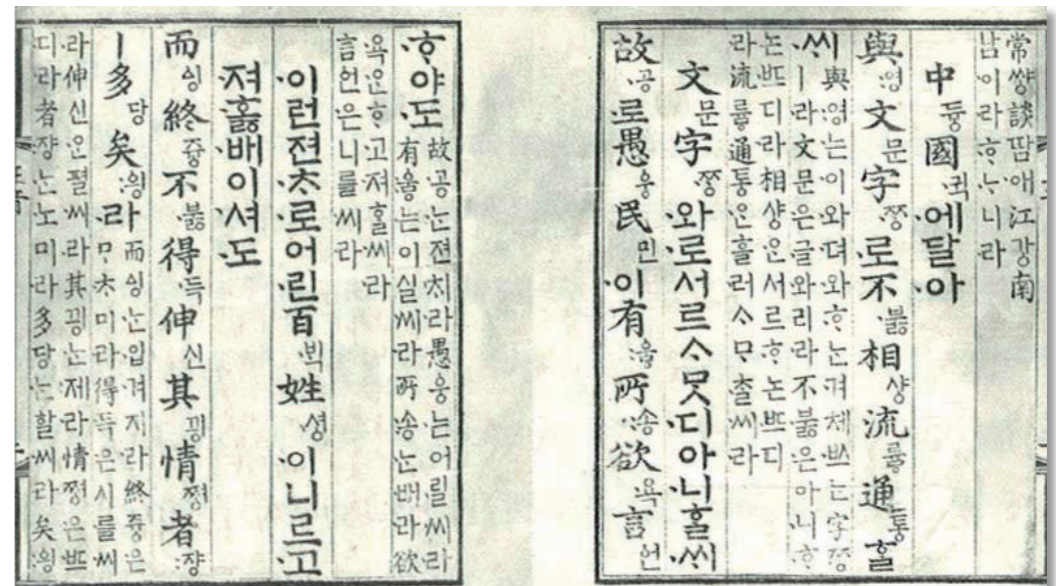 常쌍談땀애江강南
남이라ᄒᆞᄂᆞ니라
中듕國귁·에달·아
與·영文문字·ᄍᆞᆼ·로不·부ᇙ相샹流류ᇢ通토ᇰᄒᆞᆯ
·ᄊᆡ與·영는·이·와·뎌·와·ᄒᆞ는·겨체·ᄡᅳ는字·ᄍᆞᆼ
ㅣ·라文문·은·글·와리·라不·부ᇙ·은아·니·ᄒᆞ
논·ᄠᅳ디·라相샹·ᄋᆞᆫ서르·ᄒᆞ논·ᄠᅳ디
라流류ᇢ通토ᇰ·ᄋᆞᆫ흘·러ᄉᆞᄆᆞ·ᄎᆞᆯ·씨·라
文문字·ᄍᆞᆼ·와·로서르ᄉᆞᄆᆞᆺ·디아·니ᄒᆞᆯ·ᄊᆡ
故·공·로愚웅民민·이有:우ᇢ所:송欲·욕言언
·ᄒᆞ야·도故·공·ᄂᆞᆫ젼·ᄎᆡ·라愚웅·는어·릴·씨·라
有:우ᇢ·는이실·씨·라所:송·ᄂᆞᆫ·배·라欲
욕·ᄋᆞᆫᄒᆞ·고·져ᄒᆞᆯ·씨·라
言언·은니를·씨·라
·이런젼·ᄎᆞ·로어·린百·ᄇᆡᆨ姓·셩·이니르·고
·져·호ᇙ·배이·셔·도
而ᅀᅵᆼ終쥬ᇰ不·부ᇙ得·득伸신其끵情쪄ᇰ者:쟝
ㅣ多당矣:ᅌᅴᆼ·라而ᅀᅵᆼ·ᄂᆞᆫ·입·겨지·라終쥬ᇰ·은
ᄆᆞᄎᆞ미·라得·득·은시·를·씨
라伸신·ᄋᆞᆫ펼·씨·라其끵·는:제·라情쪄ᇰ·은·ᄠᅳ
디·라者:쟝·ᄂᆞᆫ·노미·라多당·ᄂᆞᆫ할·씨·라矣:ᅌᅴᆼ